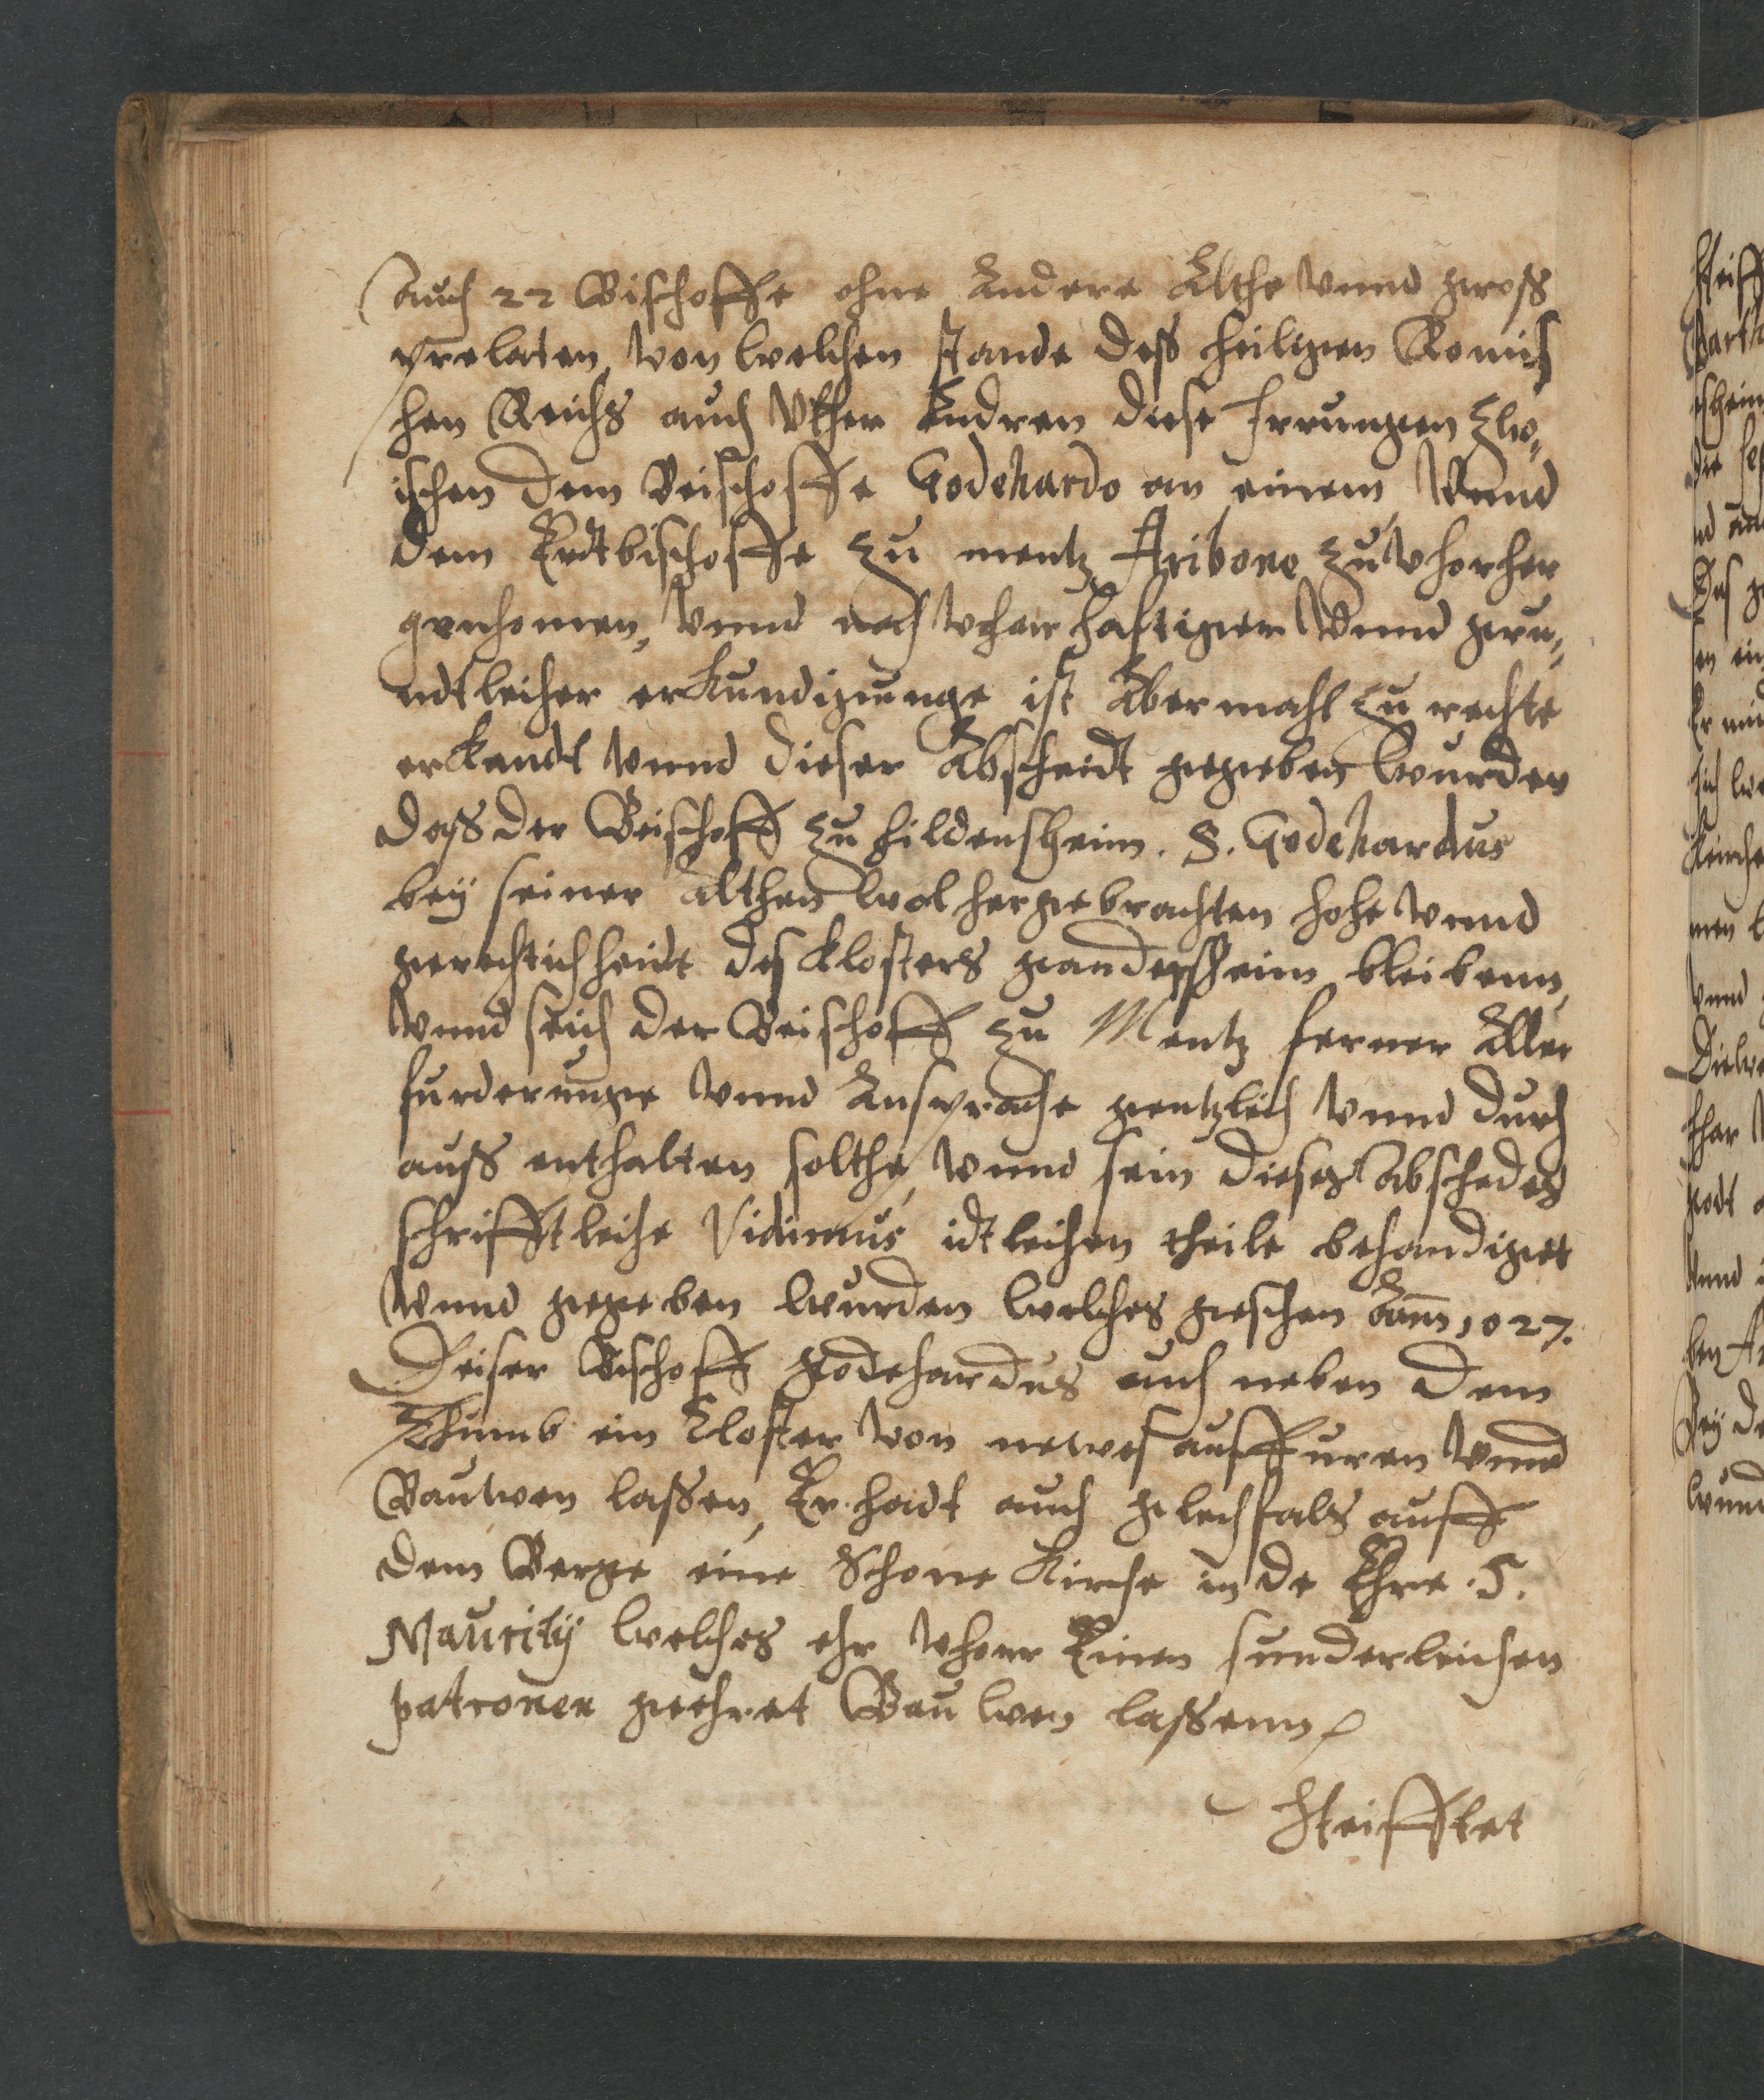 auch 22 Bischoffe ohne Andere Althe vnnd gross
prelaten, von welchen stande dess heiligen Romis
hen Reichs auch vther Andren diese Irrungen Zwo,,
ischen dem Beischoffe Godehardo an einem, Vnnd
dem Erdtbischoffe zu mentz Aribone zu vhorher
genhomen, vnnd nach wharhaftiger Vnnd gru,,
ndtleicher erkundigunge ist Abermahl zu rechte
erkandt vnnd dieser Abscheidt gegeben wurden
dass der Beischoff zu Hildensheim. S. Godehardus
bey seiner Althen wolhergebrachten hohe vnnd
gerechtichheidt des Klosters gandessheim bleibenn,
Vnnd seich der Beischoff zu Mentz ferner Aller
furderunge vnnd Ansprache gentzlich vnnd durch
auss enthalten solthe, vnnd sein dieses Abschedes
schrifftleiche Vidimus idtleichen theile behandiget
Vnnd gegeben wurden welches geschen Ann 1027.
Deiser Bischoff Godehardus auch neben dem
Thumb ein Closter von newes auffuren vnnd
Bauwen lassen, Er hadt auch glechfals auff
dem Berge eine Schone Kirche in de Ehre .S.
Maurity welches ehr vhorr Einen sunderleichen
patronen geehret Bauwen lassenn
Steifftet